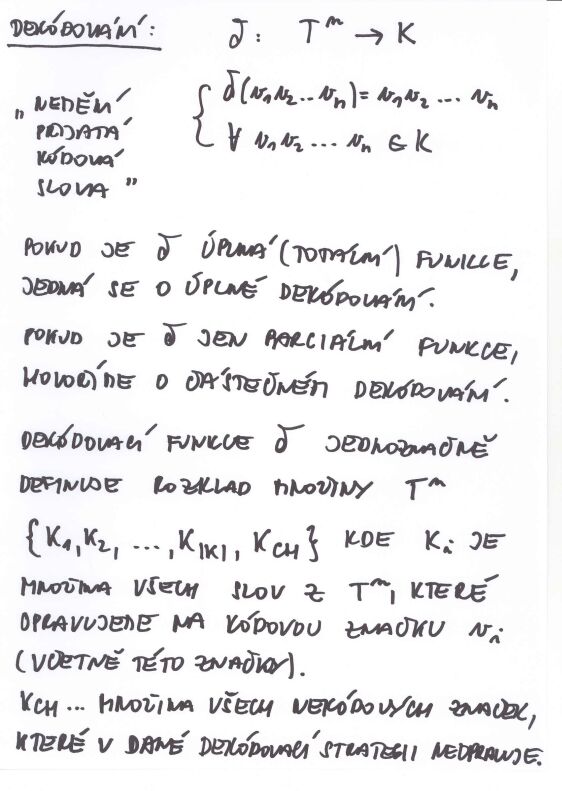 DEKÓDOVÁNÍ: δ: Tⁿ → K
„ NEMĚNÍ
PŘIJATÁ
KÓDOVÁ
SLOVA "
{ δ(v₁v₂...vₙ) = v₁v₂ ... vₙ
∀ v₁v₂ ... vₙ ∈ K
POKUD JE δ ÚPLNÁ (TOTÁLNÍ) FUNKCE,
JEDNÁ SE O ÚPLNÉ DEKÓDOVÁNÍ.
POKUD JE δ JEN PARCIÁLNÍ FUNKCE,
HOVOŘÍME O ČÁSTEČNÉM DEKÓDOVÁNÍ.
DEKÓDOVACÍ FUNKCE δ JEDNOZNAČNĚ
DEFINUJE ROZKLAD MNOŽINY Tⁿ
{K₁, K₂, ..., K|K|, KCH} KDE Kᵢ JE
MNOŽINA VŠECH SLOV Z Tⁿ, KTERÉ
OPRAVUJEME NA KÓDOVOU ZNAČKU vᵢ
(VČETNĚ TÉTO ZNAČKY).
KCH ... MNOŽINA VŠECH NEKÓDOVÝCH ZNAČEK,
KTERÉ V DANÉ DEKÓDOVACÍ STRATEGII NEOPRAVUJE.